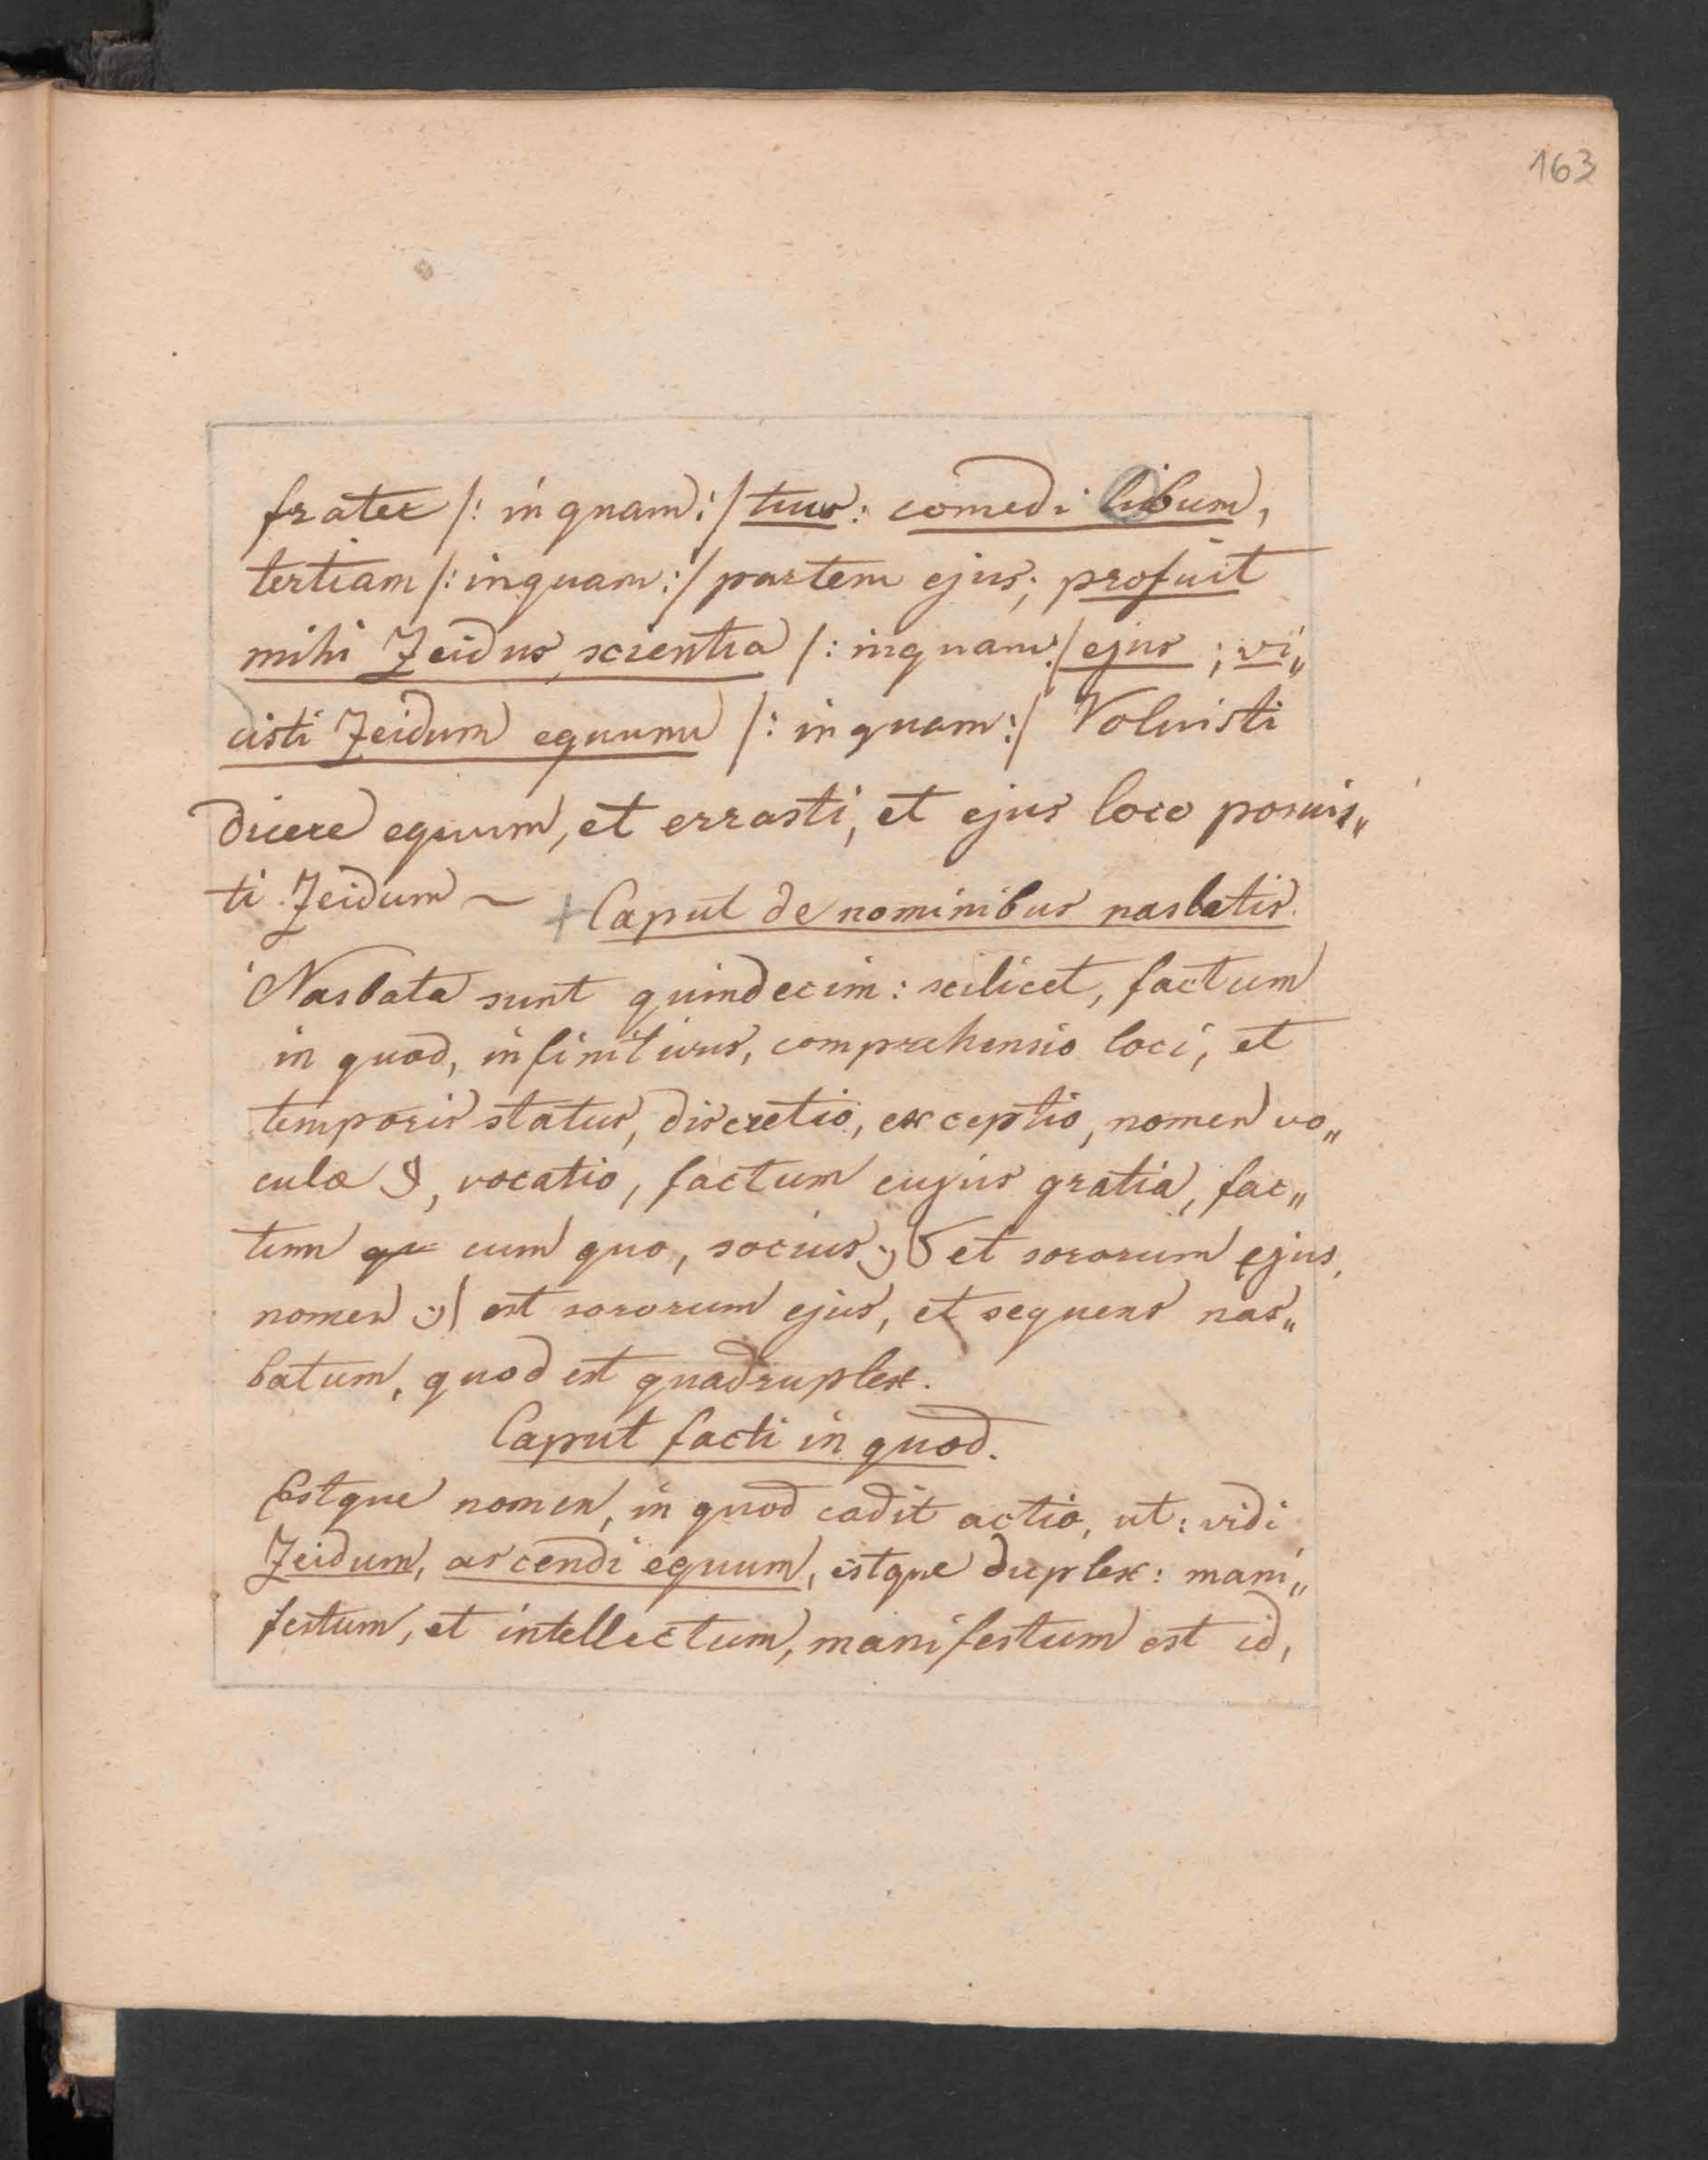 163
frater /: inquam :/ tuus: comedi libum,
tertiam /: inquam :/ partem ejus; profuit
mihi Zeidus, scientia /: inquam :/ ejus ; vi„
cisti Zeidum equum /: inquam :/ Voluisti
dicere equum, et errasti, et ejus loco posuis„
ti Zeidum ~ + Caput de nominibus nasbatis.
Nasbata sunt quindecim: scilicet, factum
in quod, infinitivus, comprahensio loci, et
temporis status, discretio, exceptio, nomen vo„
culæ لا, vocatio, factum cujus gratia, fac„
tum qu cum quo, socius كان et sororum ejus,
nomen ان est sororum ejus, et sequens nas„
batum, quod est quadruplex.
Caput facti in quod.
Estque nomen, in quod cadit actio, ut: vidi
Zeidum, ascendi equum, estque duplex: mani„
festum, et intellectum, manifestum est id,